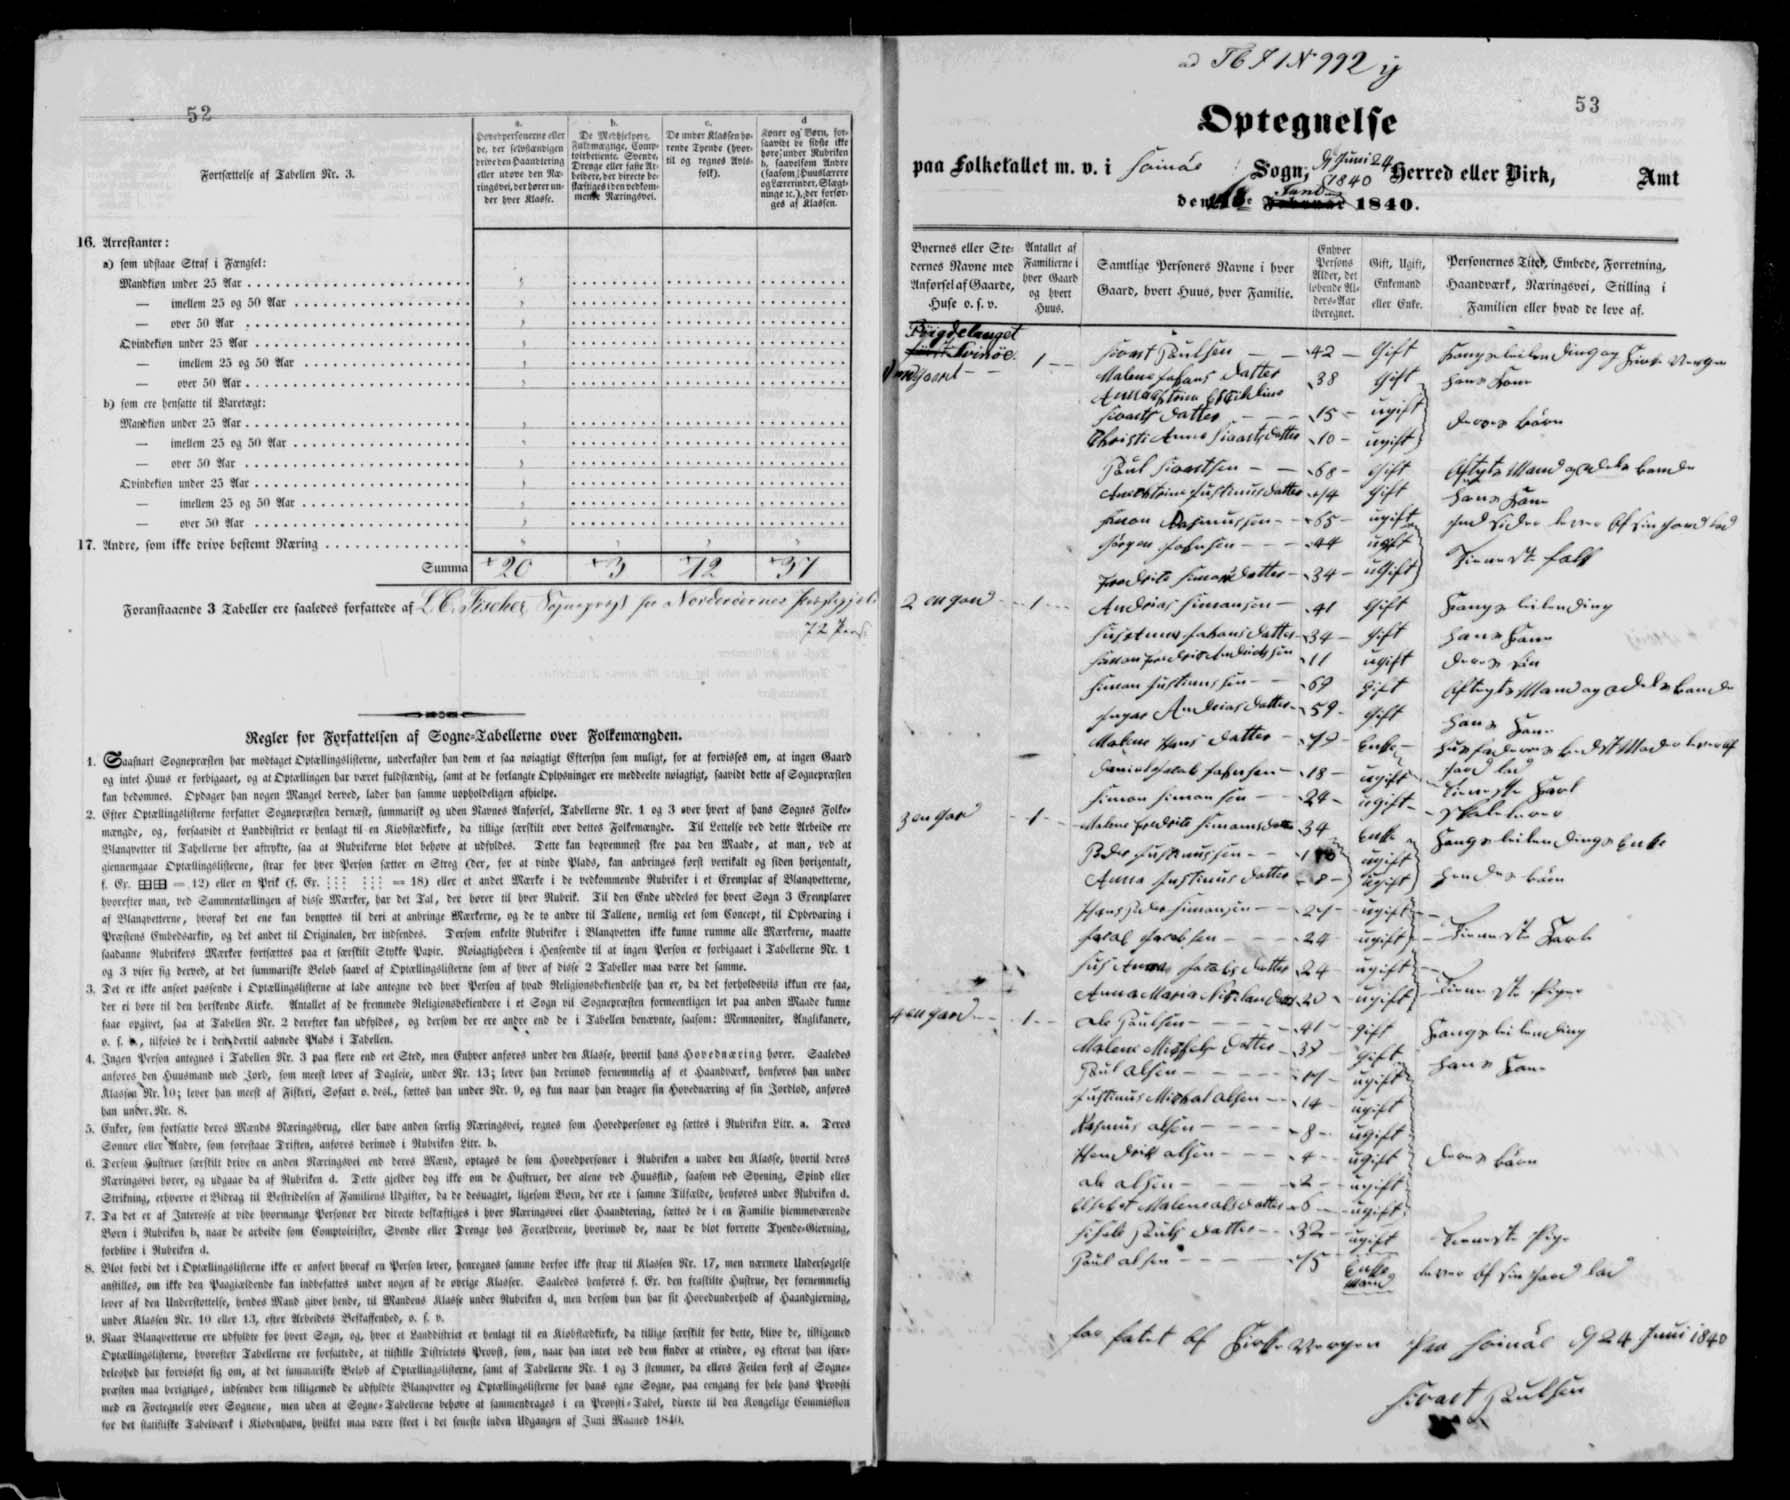 52
Fortsættelse af Tabellen Nr. 3.
a.
Hovedpersonerne eller
de, der selvstændigen
drive den Haandtering
eller udøve den Næ-
ringsvei, der hører un-
der hver Klasse.
b.
De Medhjelpere,
Fuldmægtige, Comp-
toirbetiente, Svende,
Drenge eller faste Ar-
beidere, der directe be-
skæftiges i den vedkom-
mende Næringsvei.
c.
De under Klassen hø-
rende Tyende (hvor-
til og regnes Avls-
folk).
d
Koner og Børn, for-
saavidt de sidste ikke
høre under Rubriken
b, saavelsom Andre
(saasom Huuslærere
og Lærerinder, Slægt-
ninge ɾc.), der forsør-
ges af Klassen.
16. Arrestanter:
a) som udstaae Straf i Fængsel:
Mandkiøn under 25 Aar
— imellem 25 og 50 Aar
— over 50 Aar
Qvindekiøn under 25 Aar
— imellem 25 og 50 Aar
— over 50 Aar
b) som ere hensatte til Varetægt:
Mandkiøn under 25 Aar
— imellem 25 og 50 Aar
— over 50 Aar
Qvindekiøn under 25 Aar
— imellem 25 og 50 Aar
— over 50 Aar
17. Andre, som ikke drive bestemt Næring
Summa 20 3 12 37
Foranstaaende 3 Tabeller ere saaledes forfattede af L. C. Fischer, Sognepræst for Norderöernes Præstegjeld
72 Pers.
Regler for Forfattelsen af Sogne-Tabellerne over Folkemængden.
1. Saasnart Sognepræsten har modtaget Optællingslisterne, underkaster han dem et saa nøiagtigt Eftersyn som muligt, for at forvisses om, at ingen Gaard
og intet Huus er forbigaaet, og at Optællingen har været fuldstændig, samt at de forlangte Oplysninger ere meddeelte nøiagtigt, saavidt dette af Sognepræsten
kan bedømmes. Opdager han nogen Mangel derved, lader han samme uopholdeligen afhielpe.
2. Efter Optællingslisterne forfatter Sognepræsten dernæst, summarisk og uden Navnes Anførsel, Tabellerne Nr. 1 og 3 over hvert af hans Sognes Folke-
mængde, og, forsaavidt et Landdistrict er henlagt til en Kiøbstædkirke, da tillige særskilt over dettes Folkemængde. Til Lettelse ved dette Arbeide ere
Blanqvetter til Tabellerne her aftrykte, saa at Rubrikerne blot behøve at udfyldes. Dette kan beqvemmest skee paa den Maade, at man, ved at
giennemgaae Optællingslisterne, strax for hver Person sætter en Streg (der, for at vinde Plads, kan anbringes først vertikalt og siden horizontalt,
f. Ex. ⊞⊞ = 12) eller en Prik (f. Ex. ⋮⋮⋮ ⋮⋮⋮ = 18) eller et andet Mærke i de vedkommende Rubriker i et Exemplar af Blanqvetterne,
hvorefter man, ved Sammentællingen af disse Mærker, har det Tal, der hører til hver Rubrik. Til den Ende uddeles for hvert Sogn 3 Exemplarer
af Blanqvetterne, hvoraf det ene kan benyttes til deri at anbringe Mærkerne, og de to andre til Tallene, nemlig eet som Concept, til Opbevaring i
Præstens Embedsarkiv, og det andet til Originalen, der indsendes. Dersom enkelte Rubriker i Blanqvetten ikke kunne rumme alle Mærkerne, maatte
saadanne Rubrikers Mærker fortsættes paa et særskilt Stykke Papir. Nøiagtigheden i Henseende til at ingen Person er forbigaaet i Tabellerne Nr. 1
og 3 viser sig derved, at det summariske Beløb saavel af Optællingslisterne som af hver af disse 2 Tabeller maa være det samme.
3. Det er ikke anseet passende i Optællingslisterne at lade antegne ved hver Person af hvad Religionsbekiendelse han er, da det forholdsviis ikkun ere faa,
der ei høre til den herskende Kirke. Antallet af de fremmede Religionsbekiendere i et Sogn vil Sognepræsten formeentligen let paa anden Maade kunne
faae opgivet, saa at Tabellen Nr. 2 derefter kan udfyldes, og dersom der ere andre end de i Tabellen benævnte, saasom: Memnoniter, Anglikanere,
o. s. v., tilføies de i den dertil aabnede Plads i Tabellen.
4. Ingen Person antegnes i Tabellen Nr. 3 paa flere end eet Sted, men Enhver anføres under den Klasse, hvortil hans Hovednæring hører. Saaledes
anføres den Huusmand med Jord, som meest lever af Dagleie, under Nr. 13; lever han derimod fornemmelig af et Haandværk, henføres han under
Klassen Nr. 10; lever han meest af Fiskeri, Søfart o. desl., sættes han under Nr. 9, og kun naar han drager sin Hovednæring af sin Jordlod, anføres
han under Nr. 8.
5. Enker, som fortsætte deres Mænds Næringsbrug, eller have anden særlig Næringsvei, regnes som Hovedpersoner og sættes i Rubriken Litr. a. Deres
Sønner eller Andre, som forestaae Driften, anføres derimod i Rubriken Litr. b.
6. Dersom Hustruer særskilt drive en anden Næringsvei end deres Mænd, optages de som Hovedpersoner i Rubriken a under den Klasse, hvortil deres
Næringsvei hører, og udgaae da af Rubriken d. Dette gjelder dog ikke om de Hustruer, der alene ved Huusflid, saasom ved Syening, Spind eller
Strikning, erhverve et Bidrag til Bestridelsen af Familiens Udgifter, da de desuagtet, ligesom Børn, der ere i samme Tilfælde, henføres under Rubriken d.
7. Da det er af Interesse at vide hvormange Personer der directe beskæftiges i hver Næringsvei eller Haandtering, sættes de i en Familie hiemmeværende
Børn i Rubriken b, naar de arbeide som Comptoirister, Svende eller Drenge hos Forældrene, hvorimod de, naar de blot forrette Tyende-Gierning,
forblive i Rubriken d.
8. Blot fordi det i Optællingslisterne ikke er anført hvoraf en Person lever, henregnes samme derfor ikke strax til Klassen Nr. 17, men nærmere Undersøgelse
anstilles, om ikke den Paagiældende kan indbefattes under nogen af de øvrige Klasser. Saaledes henføres f. Ex. den fraskilte Hustrue, der fornemmelig
lever af den Understøttelse, hendes Mand giver hende, til Mandens Klasse under Rubriken d, men dersom hun har sit Hovedunderhold af Haandgierning,
under Klassen Nr. 10 eller 13, efter Arbeidets Beskaffenhed, o. s. v.
9. Naar Blanqvetterne ere udfyldte for hvert Sogn, og, hvor et Landdistrict er henlagt til en Kiøbstædkirke, da tillige særskilt for dette, blive de, tilligemed
Optællingslisterne, hvorefter Tabellerne ere forfattede, at tilstille Districtets Provst, som, naar han intet ved dem finder at erindre, og efterat han især-
deleshed har forvisset sig om, at det summariske Beløb af Optællingslisterne, samt af Tabellerne Nr. 1 og 3 stemmer, da ellers Feilen først af Sogne-
præsten maa berigtiges, indsender dem tilligemed de udfyldte Blanqvetter og Optællingslisterne for hans egne Sogne, paa eengang for hele hans Provsti
med en Fortegnelse over Sognene, men uden at Sogne-Tabellerne behøve at sammendrages i en Provsti-Tabel, directe til den Kongelige Commission
for det statistiske Tabelværk i Kiøbenhavn, hvilket maa være skeet i det seneste inden Udgangen af Juni Maaned 1840.
ad Tb I 1 N 992
53
Optegnelse
paa Folketallet m. v. i Svinöe Sogn, Herred eller Birk, Amt
d Juni 24
1840
den Februar 1840.
Byernes eller Ste-
dernes Navne med
Anførsel af Gaarde,
Huse o. s. v.
Antallet af
Familierne i
hver Gaard
og hvert
Huus.
Samtlige Personers Navne i hver
Gaard, hvert Huus, hver Familie.
Enhver
Persons
Alder, det
løbende Al-
ders-Aar
iberegnet.
Gift, Ugift,
Enkemand
eller Enke.
Personernes Titel, Embede, Forretning,
Haandværk, Næringsvei, Stilling i
Familien eller hvad de leve af.
Bÿigdelauget
Svinöe
Gaard 1 Sivart Poulsen 42 Gift Kongsleilending og Kirke Verger
Malene Johans datter 38 Gift Hans Kone
Sivarts datter 15 ugift deres börn
Christi Anne Sivarts datter 10 ugift
Poul Sivartsen 68 Gift Aftægts Mand
Justinus datter 74 Gift Hans Kone
Simon Rasmussen 65 ugift lever af sin Jord lod
Jörgen Johnsen 44 ugift Tieneste folk
Fredrike Simons datter 34 ugift
2 en gard 1 Andreas Simonsen 41 Gift Kongsleilending
Johans datter 34 Gift Hans Kone
11 ugift deres sön
Simon Justinussen 69 Gift Aftægts Mand
Inger Andreas datter 59 Gift Hans Kone
Malene Hans datter 79 Enke
Jord lod
Daniel Jacob Johnsen 18 ugift Tieneste Karl
Simon Simonsen 24 ugift
3 en gar 1 Malene Fredrike Simons datter 34 Enke Kongsleilendings Enke
Peder Justinussen ugift
Anna Justinus datter 8 ugift hendes börn
Hans Peder Simonsen 27 ugift
Jacob Jacobsen 24 ugift Tieneste Karle
Sus Anna Jacobs datter 24 ugift
Anna Maria 20 ugift Tieneste Piger
4 en gard 1 Ole Poulsen 41 gift Kongsleilending
Malene datter 37 Gift Hans Kone
Poul Olsen 17 ugift
Justinus Michal Olsen 14 ugift
Rasmus Olsen 8 ugift
Hendrik Olsen 4 ugift deres börn
Ole Olsen 2 ugift
Elsebet Malene Ols datter 6 ugift
Pouls datter 32 ugift Tieneste Pige
Poul Olsen 75 Enke
Mand lever af sin Jord lod
for fatet af Kirke Vergen Paa Svinöe d 24 Juni 1840
Sivart Poulsen